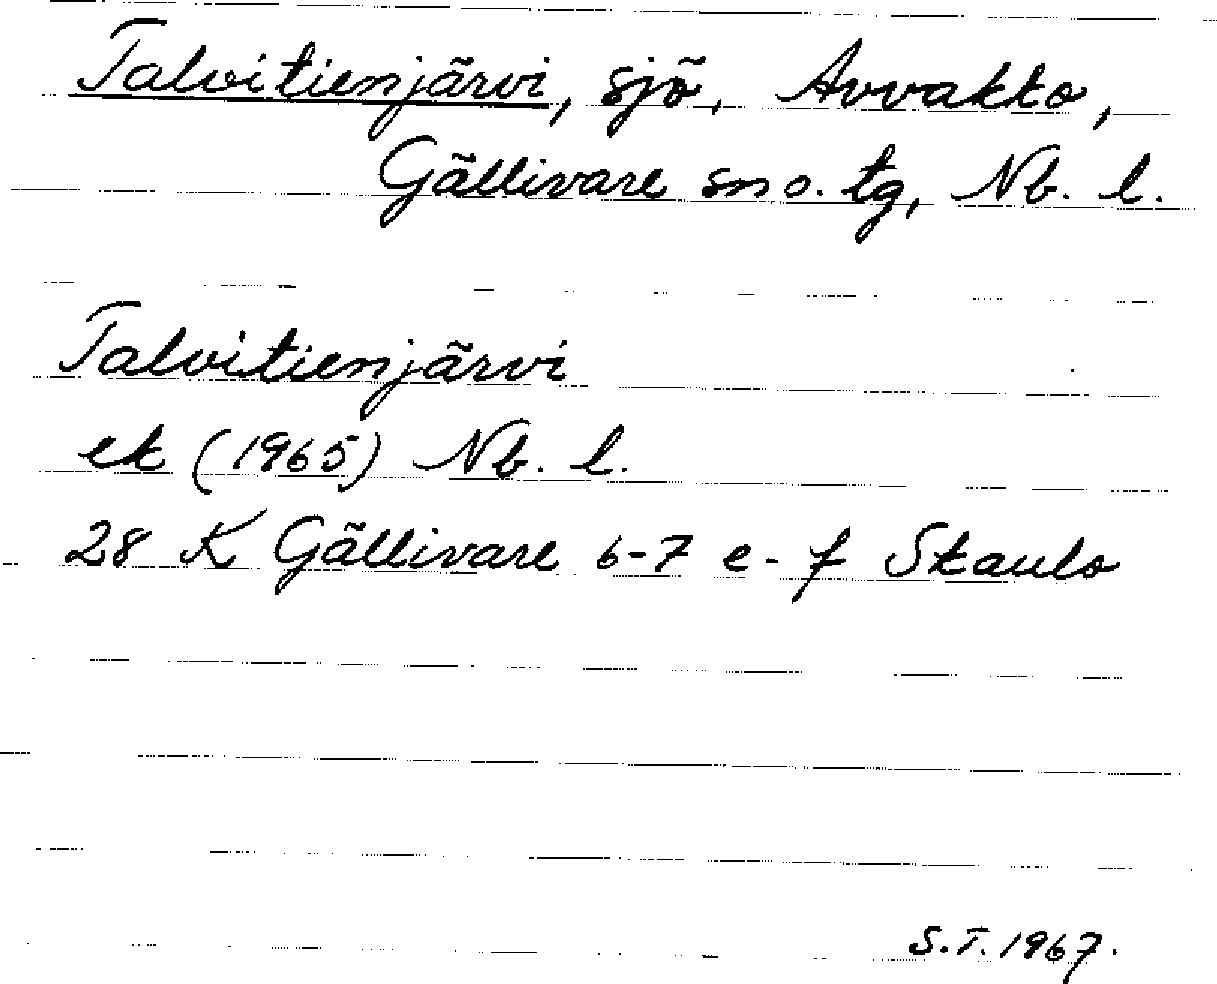 Talvitienjärvi, sjö, Avvakko,
Gällivare sn o. tg, Nb. l.
Talvitienjärvi
ek (1965) Nb. l.
28 K Gällivare 6-7 e-f Skaulo
S.T. 1967.